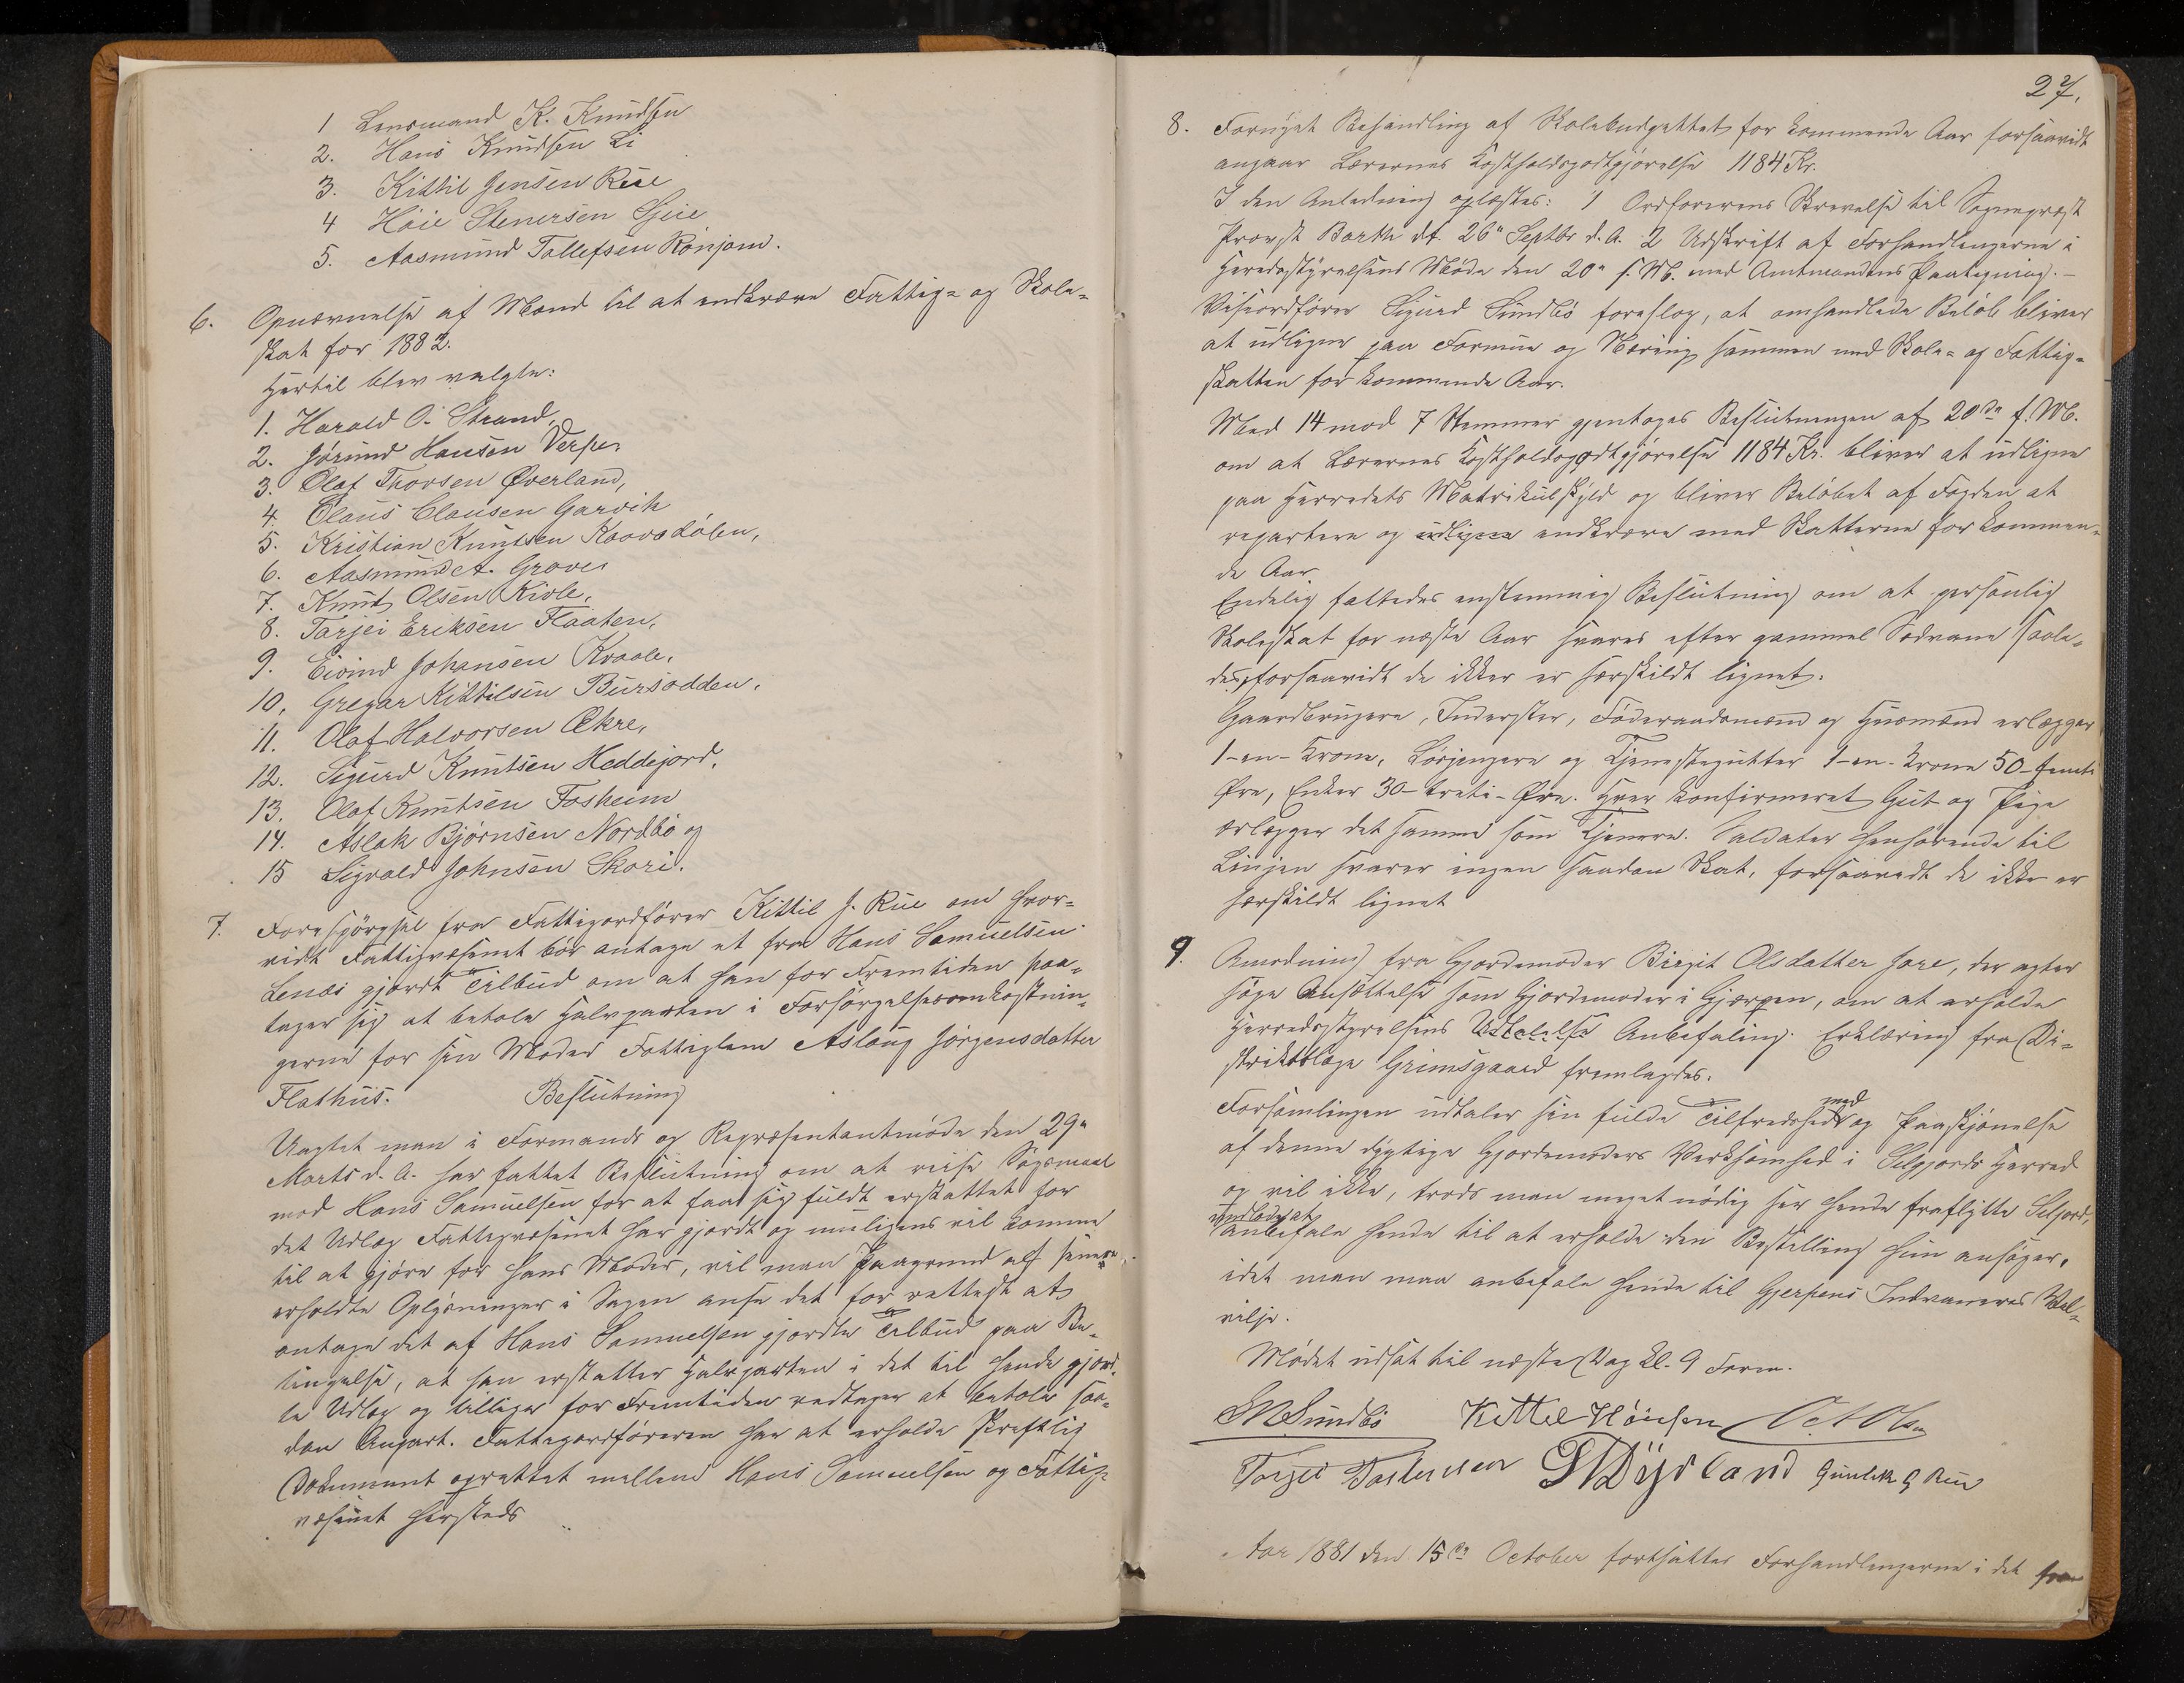 1 Lensmand K. Knudsen
2. Hans Knudsen Li
3. Kittil Jensen Rue
4 Höie Stenersen Speie
5. Aasmund Tollefsen Rönjom.
6. Opnævnelse af Mænd til at indkræve Fattig= og Skole=
skat for 1882.
Hertil blev valgte:
1. Harald O. Strand,
2. Jörund Hansen Verpe,
3. Olaf Thorsen Øverland,
4. Olaus Clausen Garvik
5. Kristian Knutsen Kaavsdölen,
6. Aasmund A. Grave,
7. Knut Olsen Kivle,
8. Tarjei Eriksen Flaaten,
9. Eivind Johansen Kraale,
10. Gregar Kittilsen Bursodden,
11. Olaf Halvorsen Ekre,
12. Sigurd Knutsen Heddejord,
13. Olaf Knutsen Fosheim
14. Aslak Bjørnsen Nordbö og
15 Sigvald Johnsen Skori.
7. Forespörgsel fra Fattigordförer Kittil J. Rue om hvor=
vidt Fattigvæsenet bör antage et fra Hans Samuelsen
gjordt Tilbud om at han for Fremtiden paa=
tager sig at betale Halvparten i Forsörgelsesomkostnin=
gerne for sin Moder Fattiglem Aslaug Jörgensdatter
Flathus. Beslutning
Uagtet man i Formands og Repræsentantmöde den 29"
Marts d. A. har fattet Beslutning om at reise Sögsmaal
mod Hans Samuelsen for at faa sig fuldt erstattet for
det Udlæg Fattigvæsenet har gjordt og muligens vil komme
til at gjöre for hans Moder, vil man paagrund af senere
erholdte Oplysninger i Sagen anse det for rettest at
antage det af Hans Samuelsen gjordte Tilbud paa Be=
tingelse, at han erstatter Halvparten i det til hende gjord=
te Udlæg og tillige for Fremtiden vedtager at betale saa=
dan Anpart. Fattigordföreren har at erholde skriftlig
Dokument oprettet mellem Hans Samuelsen og Fattig=
væsenet hersteds
27.
8. Fornyet Behandling af Skolebudgettet for kommende Aar forsaavidt
angaar Lærernes Kostholdsgodtgjörelse 1184 Kr.
I den Anledning oplæstes: 1 Ordförerens Skrivelse til Sognepræst
Provst Barth dt. 26" Septbr d. A. 2 Udskrift af Forhandlingerne i
Heredsstyrelsens Möde den 20" f. M. med Amtmandens Paategning.—
Viseordförer Sigurd Sundbö foreslog, at omhandlede Belöb bliver
at udligne paa Formue og Næring sammen med Skole= og Fattig=
skatten for kommende Aar.
Med 14 mod 7 Stemmer gjentages Beslutningen af 20de f. M.
om at Lærernes Kostholdsgodtgjörelse 1184 Kr. bliver at udligne
paa Herredets Matrikulskyld og bliver Belöbet af Fogden at
repartere og udligne indkræve med Skatterne for kommen=
de Aar
Endelig fattedes enstemmig Beslutning om at personlig
Skoleskat for næste Aar svares efter gammel Sedvane saale=
des, forsaavidt de ikke er særskildt lignet.
Gaardbrugere, Inderster, Föderaadsmænd og Husmænd erlægger
1–en–Krone, Lösgjengere og Tjenestegutter 1–en–Krone 50–femti
Øre, Enker 30–treti–Øre. Hver konfirmeret Gut og Pige
erlægger det samme som Tjenere. Soldater henhörende til
Linjen svarer ingen saadan Skat, forsaavidt de ikke er
særskildt lignet
9. Anmodning fra Gjordemoder Birgit Olsdatter Jore, der agter
söge Ansættelse som Gjordemoder i Gjerpen, om at erholde
Herredsstyrelsens Udtalelse Anbefaling. Erklæring fra Di=
striktslæge Grimsgaard fremlagdes.
Forsamlingen udtaler sin fulde Tilfredshed med og Paaskjönelse
af denne dygtige Gjordemoders Virksomhed i Seljords Herred
og vil ikke, trods man meget nödig ser hende fraflytte Seljord,
undlade at
anbefale hende til at erholde den Bestilling hun ansöger,
idet man maa anbefale hende til Gjerpens Indvaaneres Vel=
vilje.
Mödet udsat til næste Dag Kl. 9 Form.
SMSundbö Kittel Höiesen O A Ols
Torjer Torstensen Gunlek G Rue
Aar 1881 den 15de October fortsattes Forhandlingerne i det